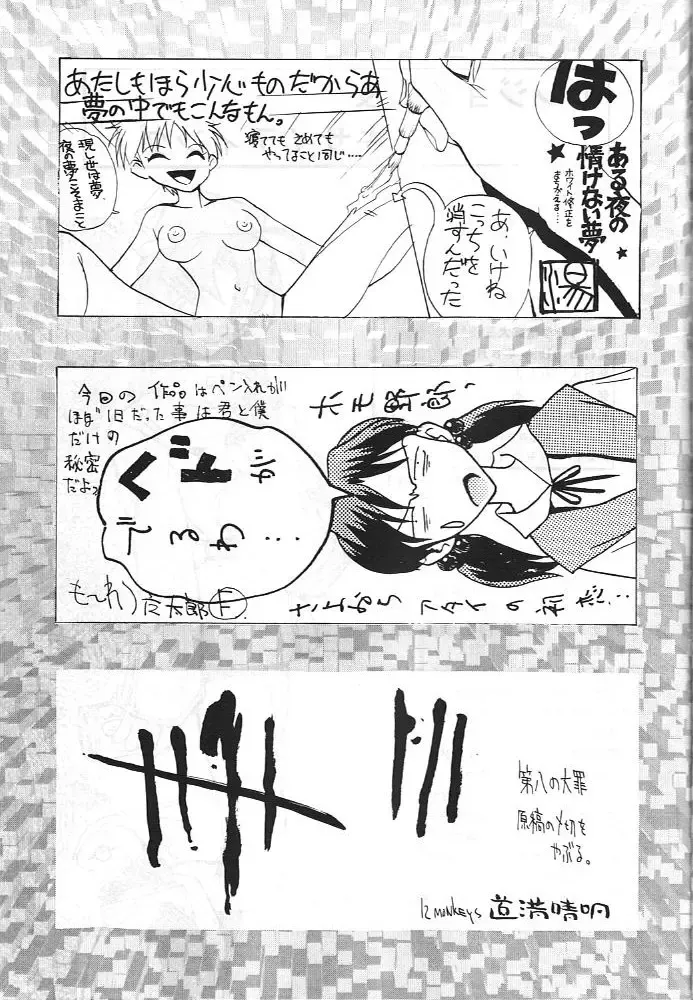 はっ
ある夜の
情けない夢
ホワイト修正を
まちがえる…
あたしもほら少心ものだっからあ
夢の中でもこんなもん。
寝ててもさめても
やってること同じ……
現し世は夢、
夜の夢こそまこと
あ、いけね
こっちを
消すんだった
今回の作品はペン入れが
ほぼ1日だった事は君と僕
だけの
秘密
だよ。
ヘドが
でるわ…
第八の大罪
原稿の〆切を
やぶる。
12 MONKEYS 道満晴明